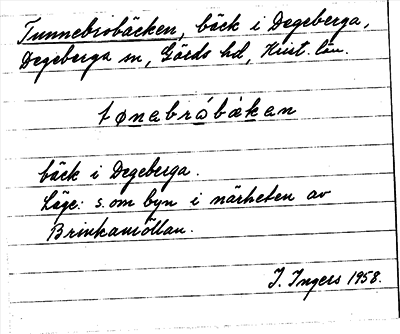 Tunnebrobäcken, bäck i Degeberga,
Degeberga sn, Gärds hd, Krist. län.
tønabråbækan
bäck i Degeberga.
Läge: s. om byn i närheten av
Brinkamöllan.
I. Ingers 1958.